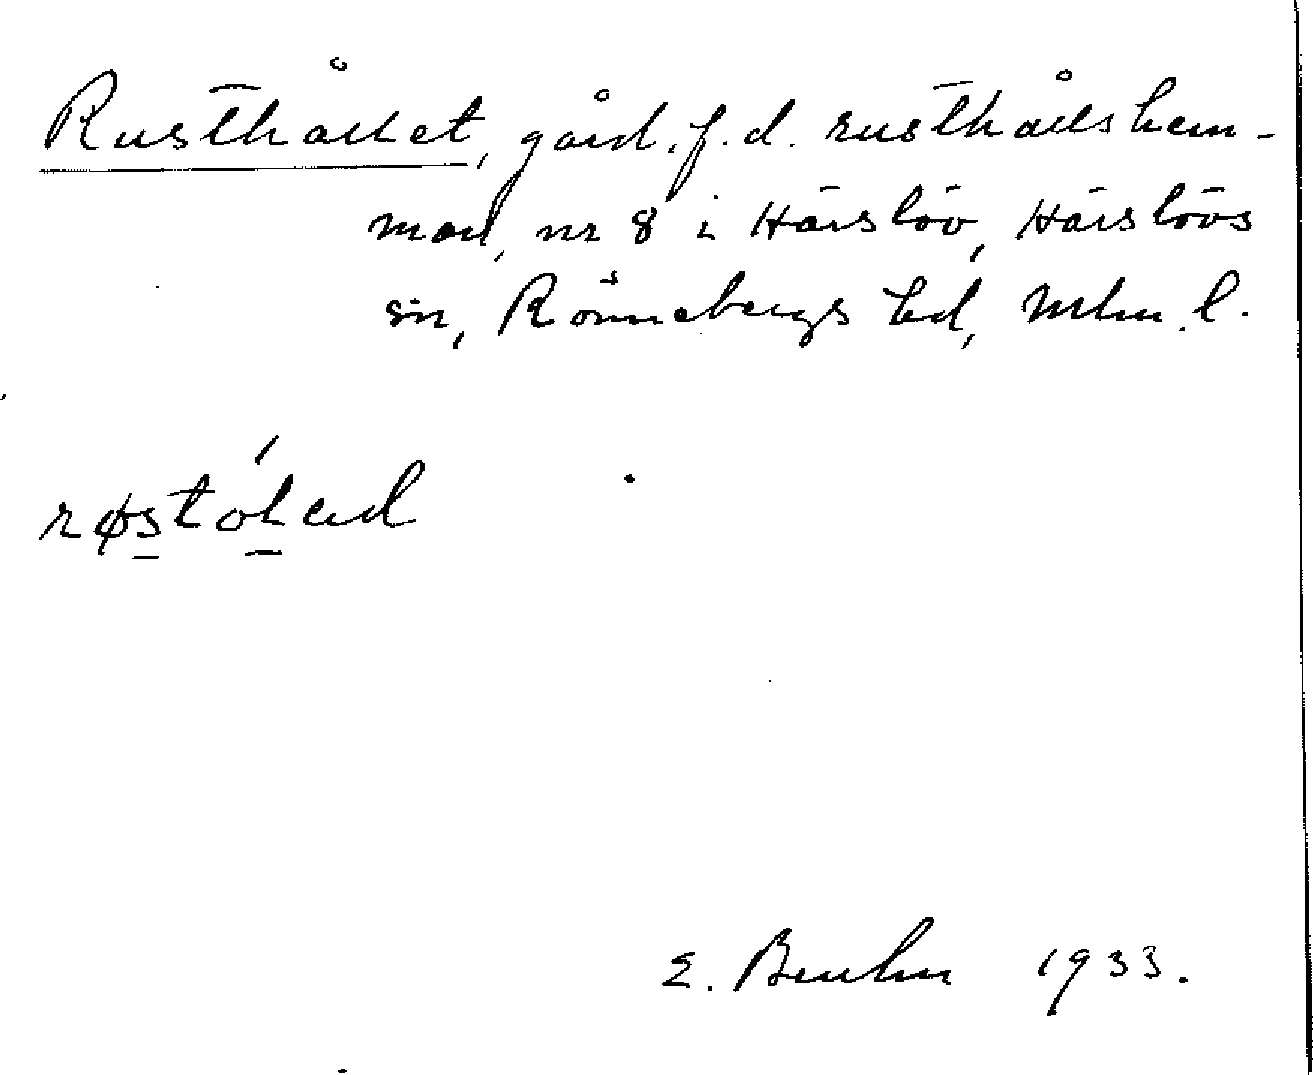 Rusthållet, gård. f.d. rusthållshem-
man, nr 8 i Härslöv, Härslövs
sn, Rönnebergs hd, Mlm. l.
E. 1933.